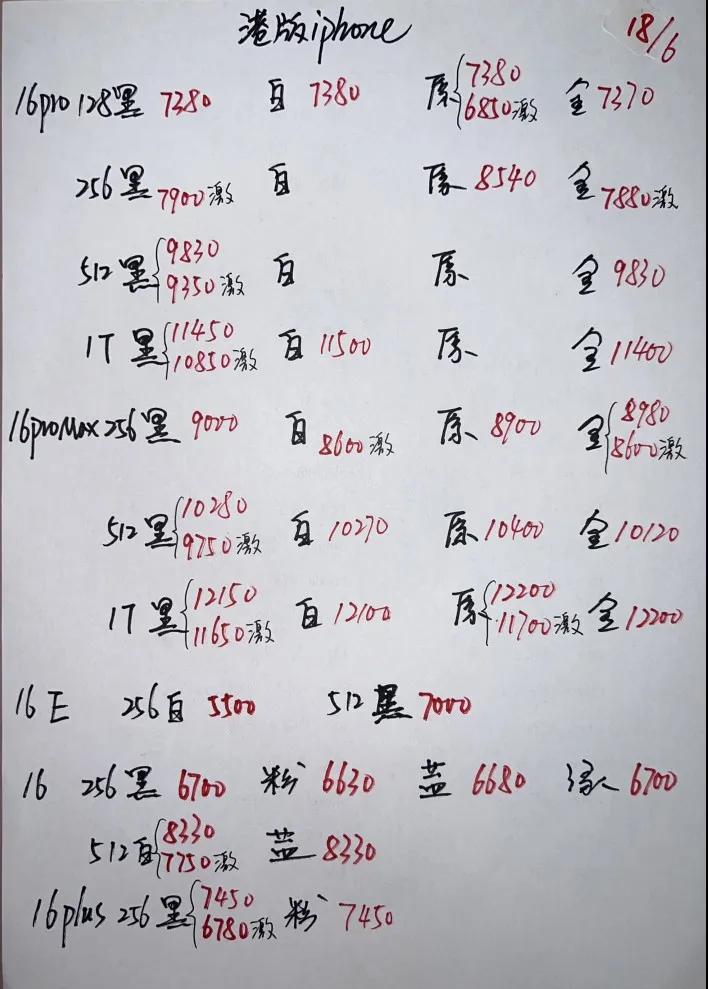 港版iphone 18/6
16pro 128黑 7380 白 7380 原 {7380 6850激 金 7370
256黑 7900激 白 原 8540 金 7880激
512黑 {9830 9350激 白 原 金 9830
1T 黑 {11450 10850激 白 11500 原 金 11400
16proMax 256黑 9000 白 8600激 原 8900 金 {8980 8600激
512黑 {10280 9750激 白 10270 原 10400 金 10120
1T 黑 {12150 11650激 白 12100 原 {12200 11700激 金 12200
16 E 256白 5500 512黑 7000
16 256黑 6700 粉 6630 蓝 6680 绿 6700
512白 {8330 7750激 蓝 8330
16plus 256黑 {7450 6780激 粉 7450